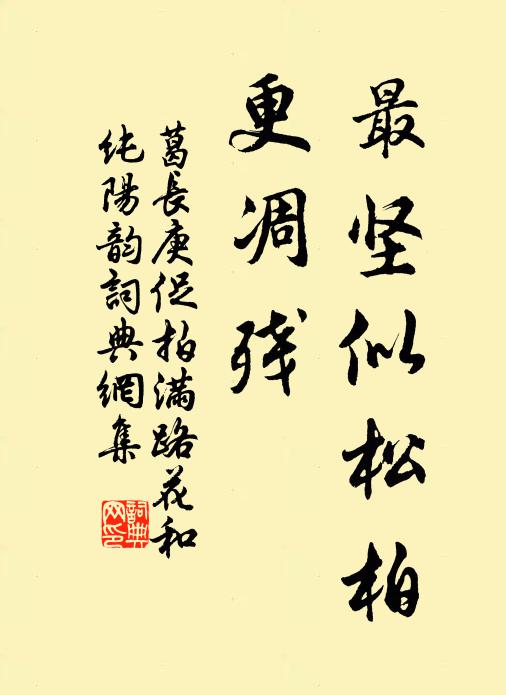 最坚似松柏
更凋残
葛長庚促拍滿路花和
纯陽韵詞典網集
詞典
网印